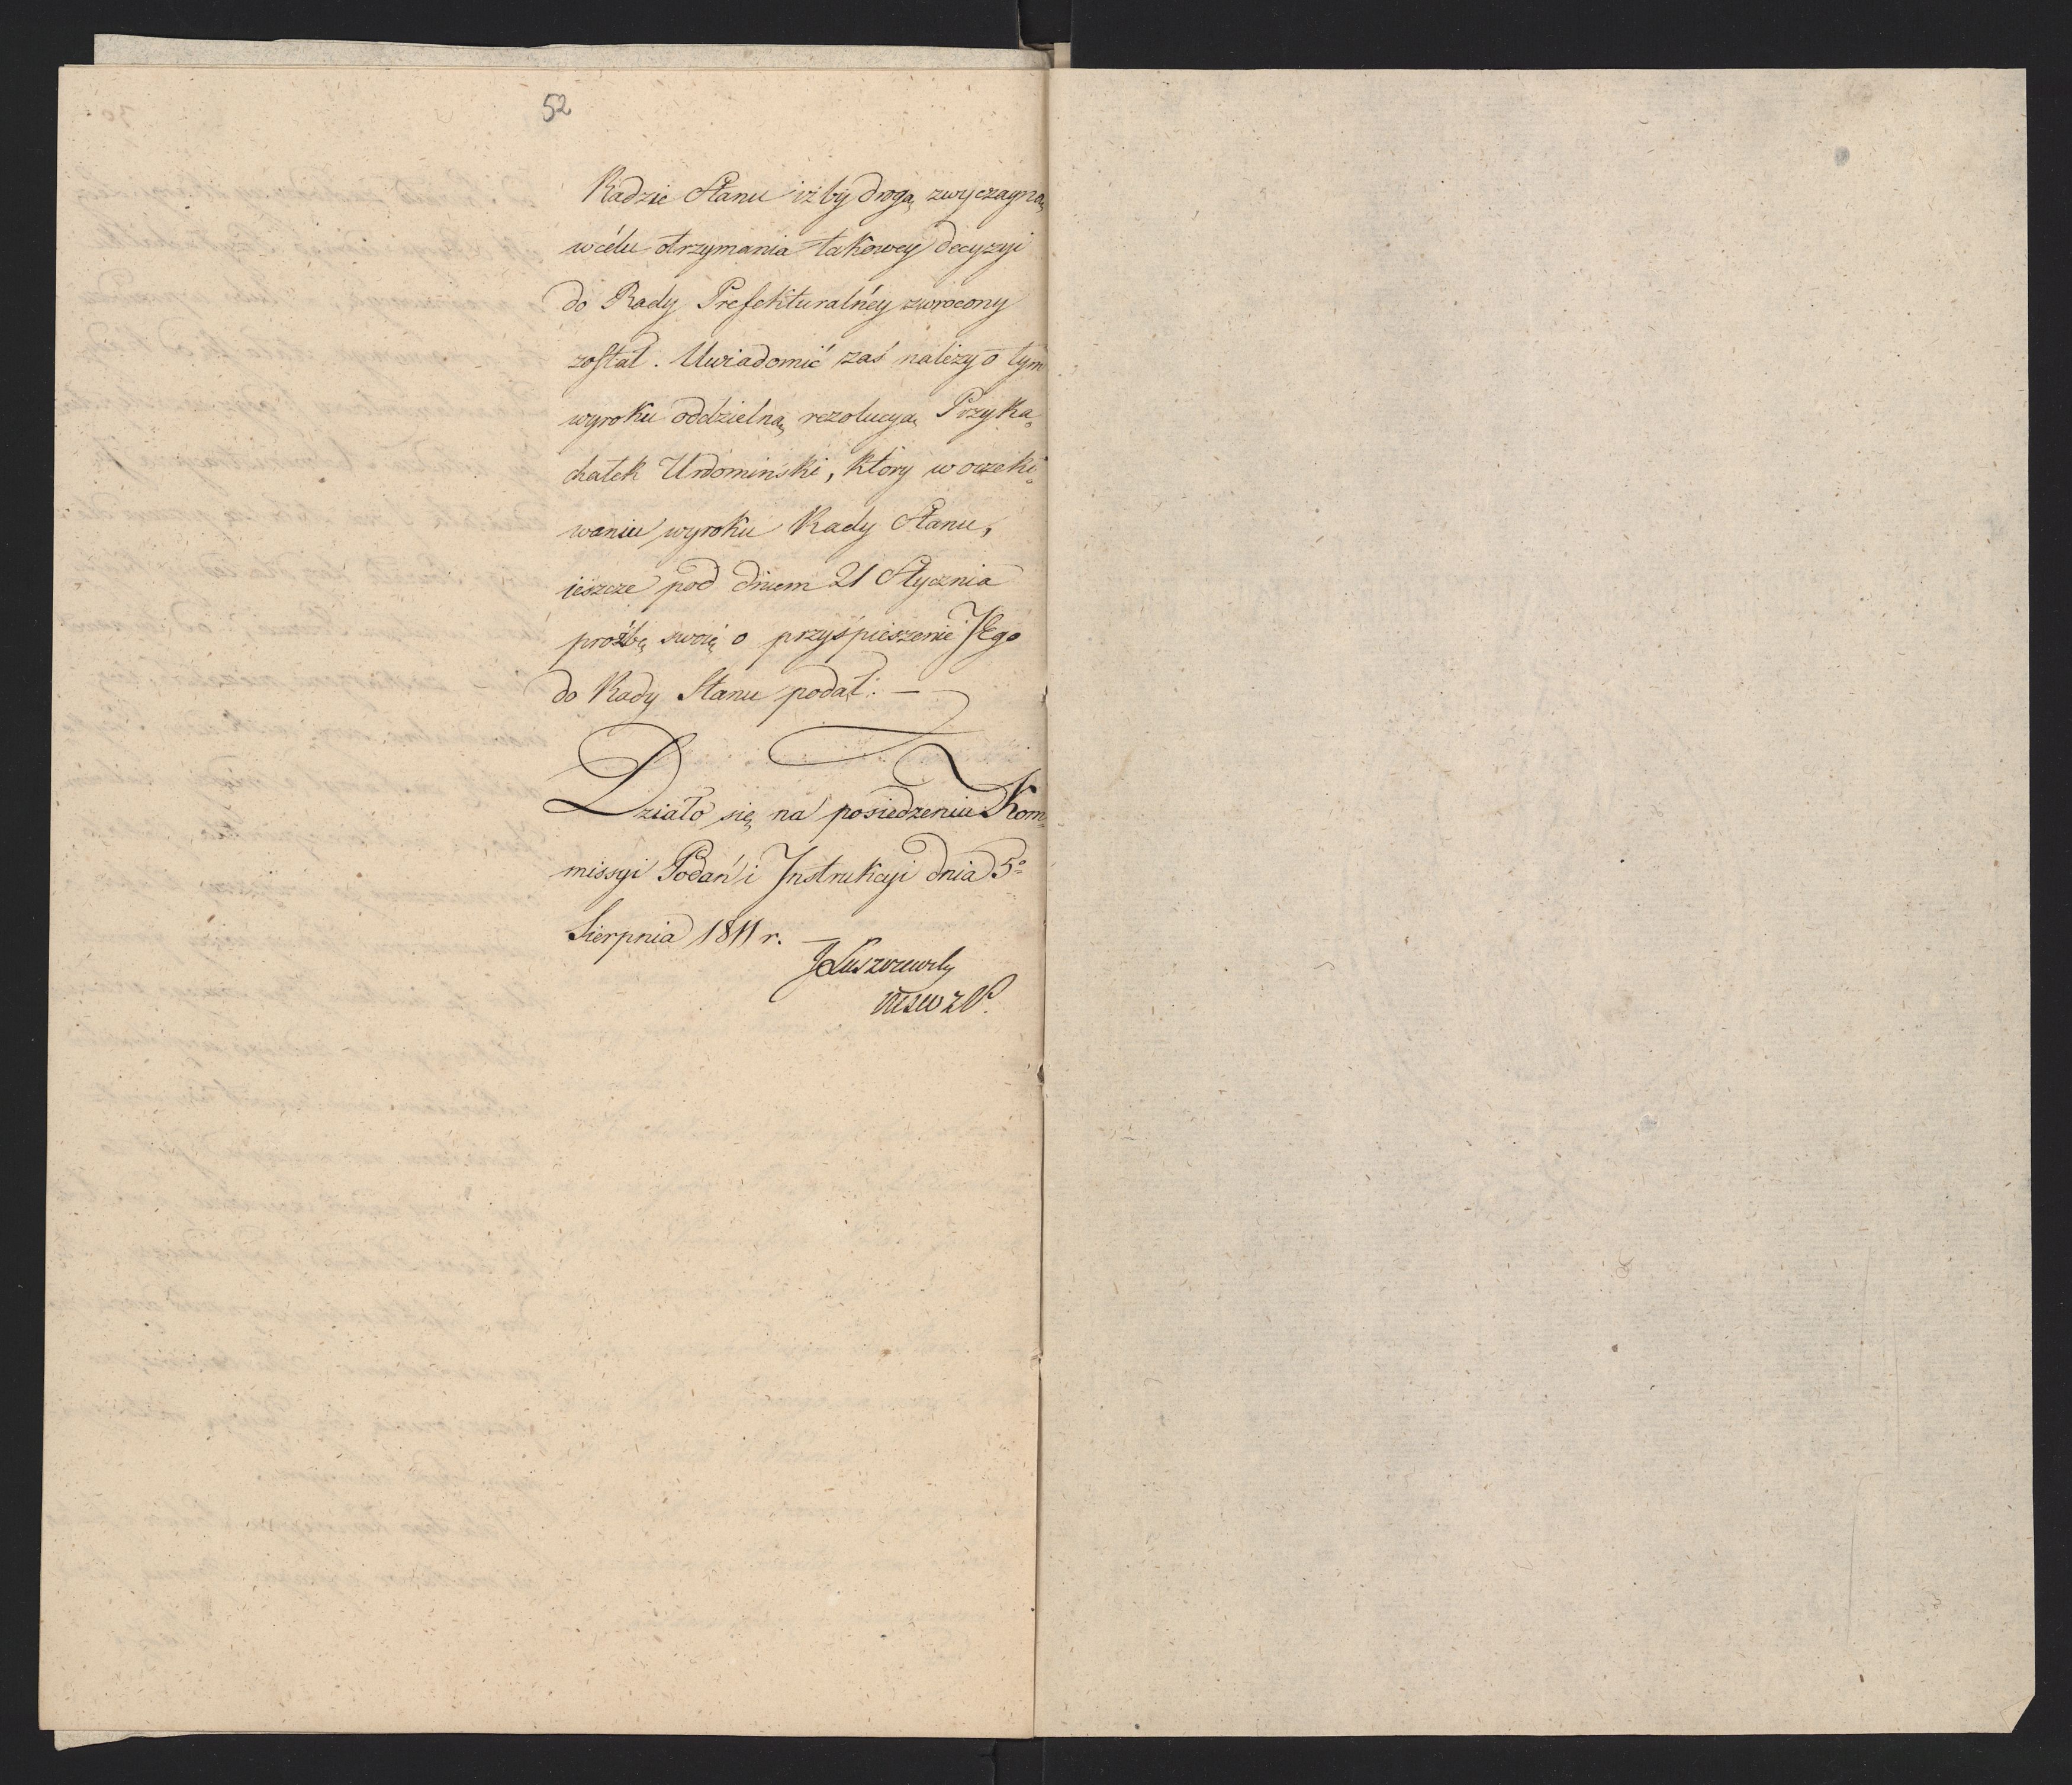 52
Radzie Stanu iżby drogą zwyczayną
w celu otrzymania takowey decyzyi
do Rady Prefekturalńey zwrócony
został. Uwiadomić zaś należy o tym
wyroku oddzielną rezolucyą Przyka=
chałek Urdomiński, który w oczeki=
waniu wyroku Rady Stanu,
ieszcze pod dniem 21 Stycznia
proźbę swoię o przyśpieszenie JEgo
do Rady Stanu podał. —
Działo się na posiedzeniu Kom=
missyi Podań i Instrukcyi dnia 5º
Sierpnia 1811 r. —